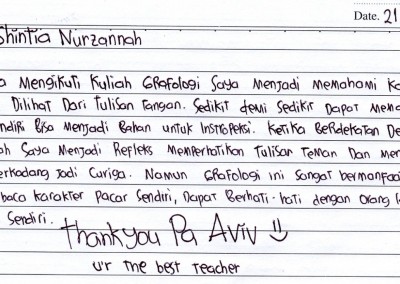 Date. 21
Shintia Nurzannah
Mengikuti Kuliah GRAFologi Saya Menjadi Memahami Ka
Dilihat Dari tulisan tangan. Sedikit demi Sedikit Dapat Mema
ndiri Bisa Menjadi Bahan untuk Instropeksi. Ketika Berdekatan De
ah Saya Menjadi Refleks Memperhatikan Tulisan Teman Dan Mem
erkadang Jadi Curiga. Namun GRAFologi ini Sangat bermanfaa
baca Karakter Pacar Sendiri, Dapat Berhati-hati dengan Orang
Sendiri.
Thankyou Pa Aviv
u'r The best Teacher